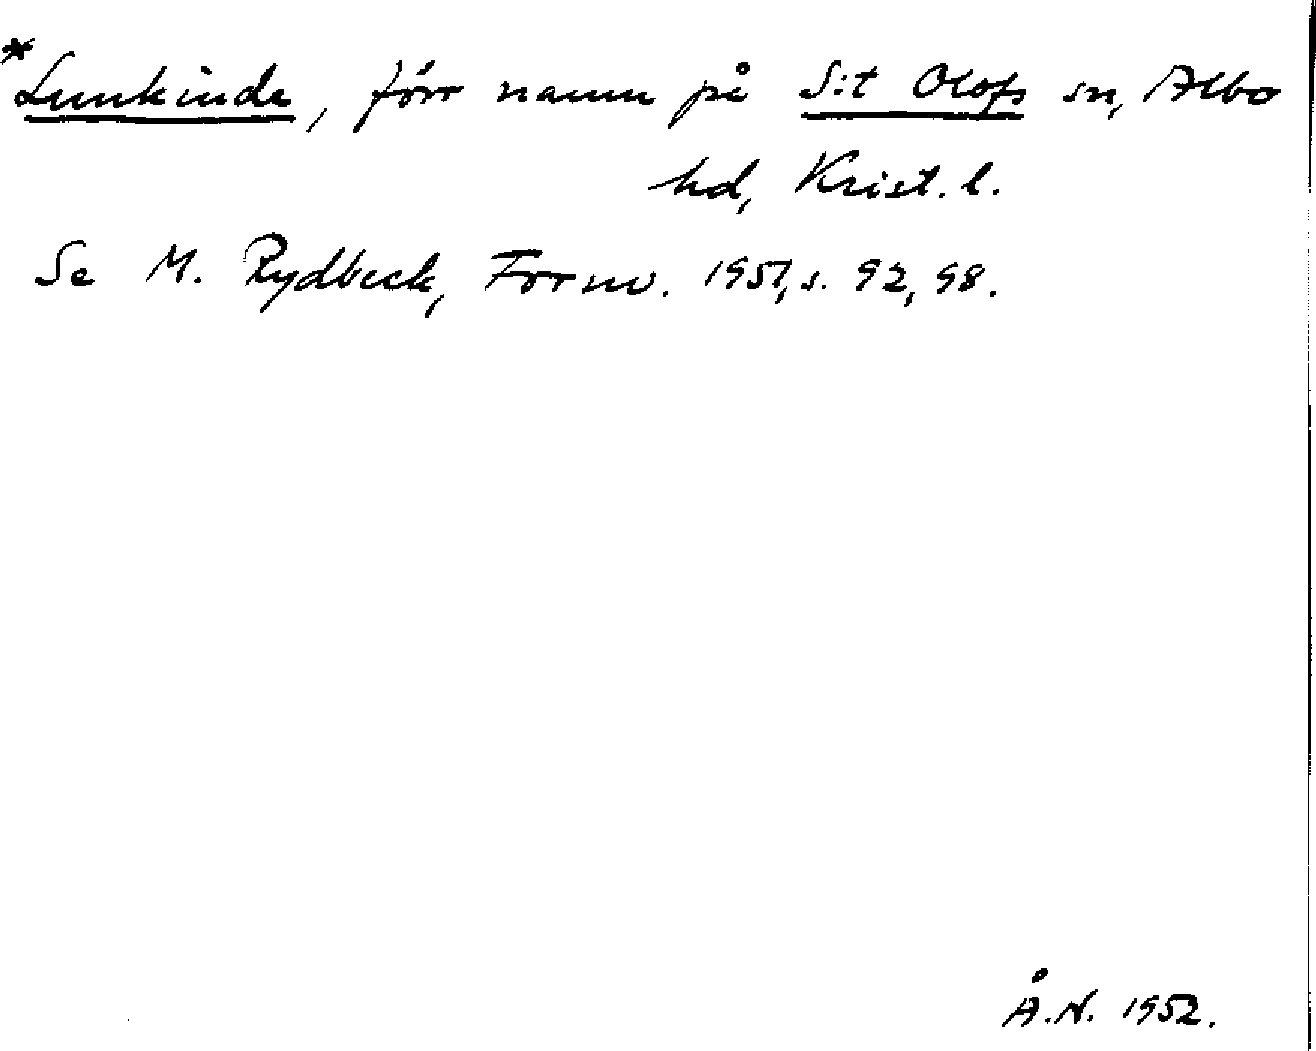 *Lunkinde, förr namn på S:t Olofs sn, Albo
hd, Krist. l.
Se M. Rydbeck, Fornv. 1957, s. 92, 98.
Å.N. 1952.